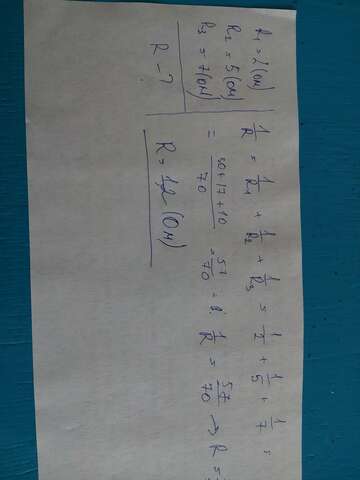 R₁ = 2 (Ом)
R₂ = 5 (Ом)
R₃ = 7 (Ом)
R – ?
1/R = 1/R₁ + 1/R₂ + 1/R₃ = 1/2 + 1/5 + 1/7 =
= 40+17+10/70 = 57/70 1/R = 57/70 → R =
R = 1,2 (Ом)